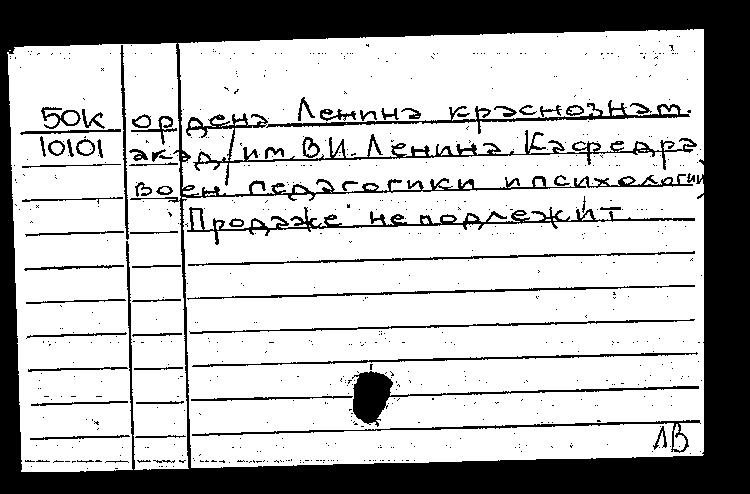 50К ордена Ленина краснознам.
10101 акад. им. В.И. Ленина. Кафедра
воен. педагогики и психологии)
Продаже не подлежит.
ЛВ